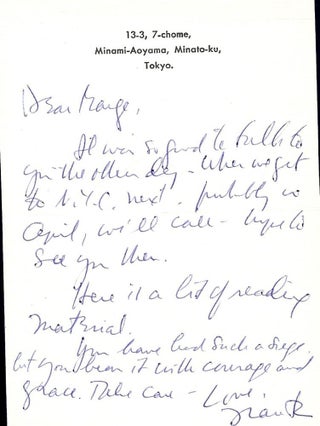 13-3, 7-chome,
Minami-Aoyama, Minato-ku,
Tokyo.
Dear Marge,
It was so good to talk to
you the other day. When we get
to N.Y.C. next, probably in
April, we'll call - hope to
see you then.
Here is a bit of reading
material.
You have had such a siege
but you bear it with courage and
grace. Take care - Love,
Frank